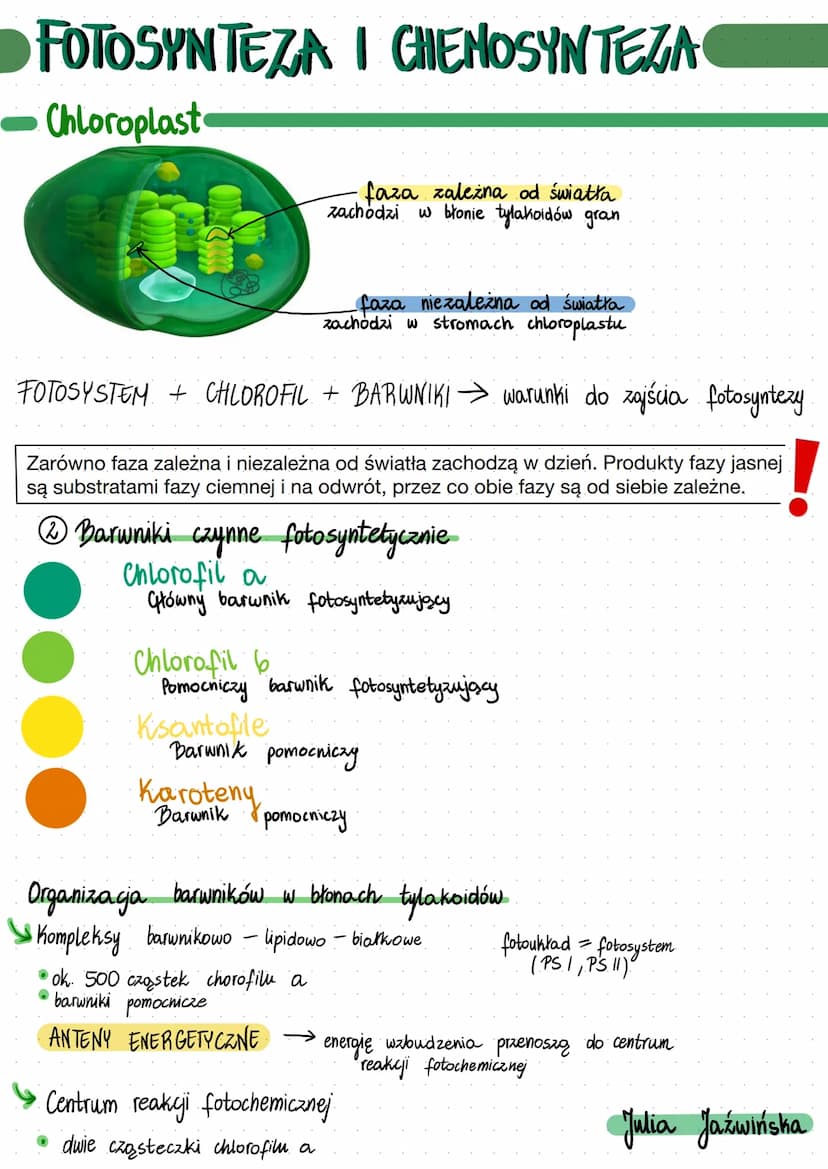 FOTOSYNTEZA I CHEMOSYNTEZA
Chloroplast
faza zależna od światła
zachodzi w błonie tylakoidów gran
faza niezależna od światła
zachodzi w stromach chloroplastu
FOTOSYSTEM + CHLOROFIL + BARWNIKI → warunki do zajścia fotosyntezy
Zarówno faza zależna i niezależna od światła zachodzą w dzień. Produkty fazy jasnej
są substratami fazy ciemnej i na odwrót, przez co obie fazy są od siebie zależne.
!
② Barwniki czynne fotosyntetycznie
Chlorofil a
Główny barwnik fotosyntetyzujący
Chlorofil b
Pomocniczy barwnik fotosyntetyzujący
Ksantofile
Barwnik pomocniczy
Karoteny
Barwnik pomocniczy
Organizacja barwników w błonach tylakoidów
Kompleksy barwnikowo – lipidowo – białkowe
fotoukład = fotosystem
(PS I, PS II)
• ok. 500 cząstek chorofilu a
• barwniki pomocnicze
ANTENY ENERGETYCZNE → energię wzbudzenia przenoszą do centrum
reakcji fotochemicznej
Centrum reakcji fotochemicznej
• dwie cząsteczki chlorofilu a
Julia Jaźwińska